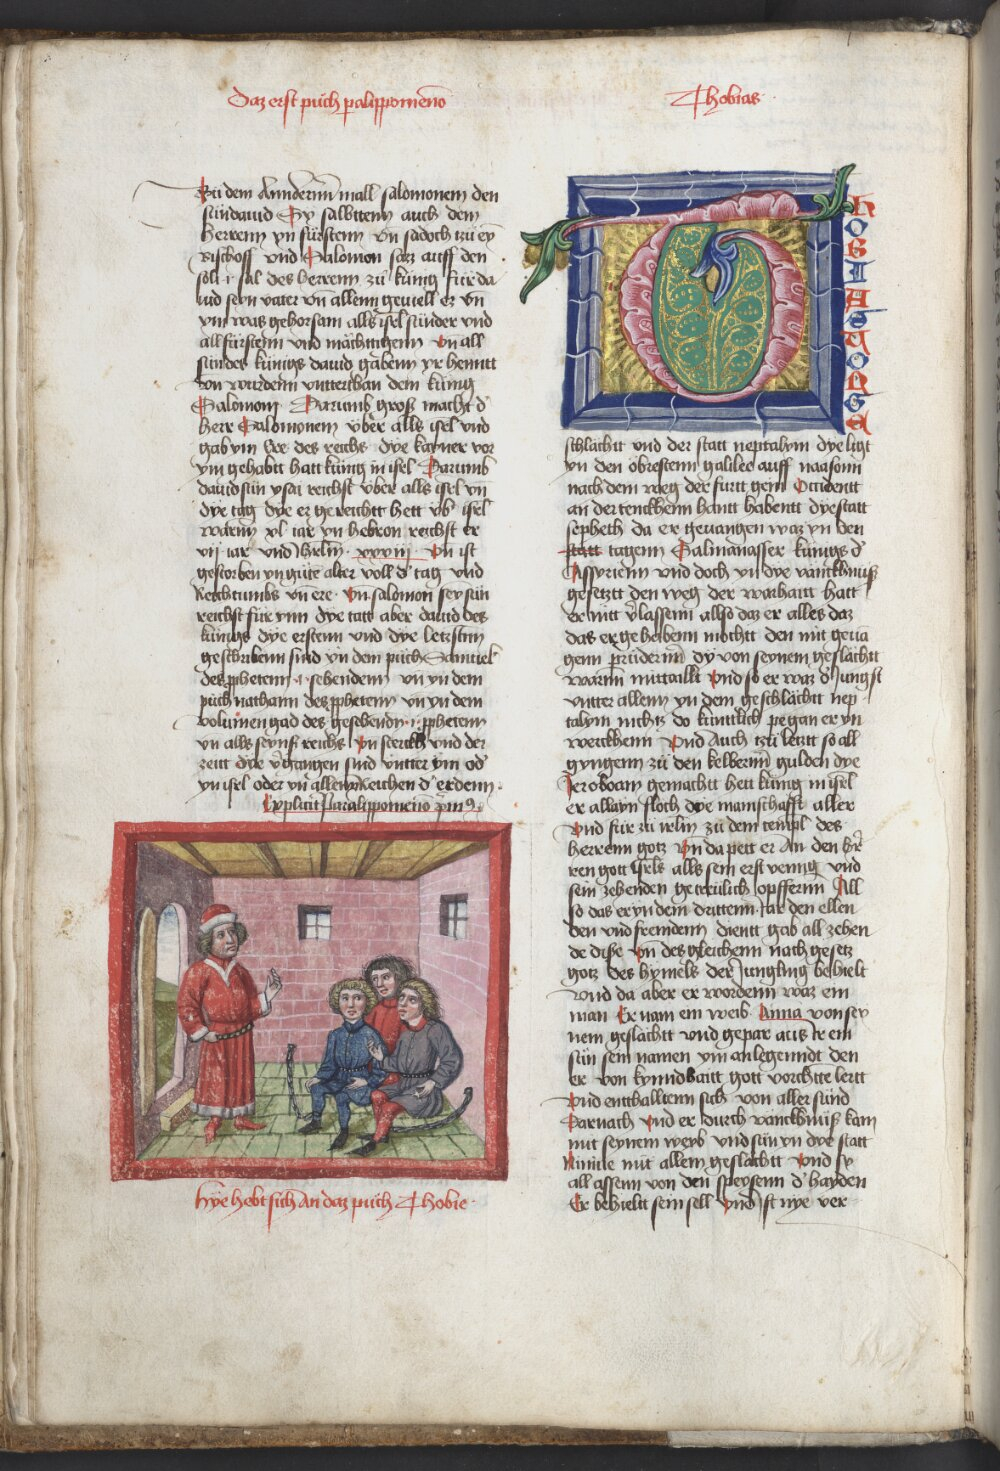 Daz erst puͤch paralippomenō
Thobias
Zü dem Anndermͥ mall salomonem den
sün dauid Sy salbttenn auch dem
herrenn yn fürstenn vn̄ sadoch tzü ey
Bischoff vnd Salomon saz auff den
soli i sal des herrenn zü künig für da
uid seyn vater vn̄ allenn geuiell er vn̄
ym was gehorsam alls isrl sünder vnd
all fürstenn vnd mächttigenn vn̄ all
sünder künigs dauid gabenn yr henntt
vn̄ wurdenn vntterthan dem künig
Salomon Darumb groß macht d'
herr Salomonem vber alls isrl vnd
gab ym Ere des reichs dye kayner vor
ym gehabtt hatt künig in isrl Darumb
dauid sün ysai reichst vber alls isrl vn̄
dye tag dye er gereichtt hett vb' isrl
warnn xl iar yn hebron reichst er
vij iar vnd Jhrlm xxxiij vn̄ ist
gestorben yn güte alter voll d' tag vnd
Reichtumbs vn̄ ere vn̄ salomon sey sün
reichst für ynn dye tatt aber dauid des
künigs dye erstenn vnd dye letzstnn
geschribenn sind yn dem püch Samuel
des pphetenn i sehendenn vn̄ yn dem
püch nathann des pphetenn vn̄ yn dem
volumen gad des gesehendn i pphetenn
vn̄ alls seyns reichs vn̄ sterckh vnd der
zeitt dye vgangen sind vntter ym od'
yn isrl oder yn allenn Reichen d' erdenn
Explicit Paralippomenō pm9
Hye hebt sich an daz puͤch Thobie
THOBIAS VONR A
schlachtt vnd der statt neptalym dye ligt
yn den öbrestenn galilee auff naasonn
nach dem weg der furtt genn Occidentt
an der tenckhenn hantt habentt dye statt
sepheth da er geuangen waz yn den
statt tagenn Salmanasser künigs d'
Assyrienn vnd doch yn dye vanckhnuß
gesetztt den weg der warhaitt hatt
er nitt vlassenn allso daz er alles daz
das er gehabenn mochtt den mit geua
genn prüdernn dy von seynem geslächtt
warnn mittailtt vnd so er waz d' Jungst
vntter allenn yn dem geschlächtt nep
talym nichtz do künttlich pegan er yn
werckhenn vnd Auch tzü letzt so all
gyngenn zü den kelbernn gulden dye
Jeroboam gemachtt hett künig in isrl
er allayn floch dye manschafft aller
vnd für zü irlm zü dem templ des
herrenn gotz vn̄ da pett er An den hr̄
ren gott Jsrls alls sein erst vennig vnd
sein zehenden getreülich opffernn All
so das er yn dem drittenn Jar den ellen
den vnd fremdenn dientt gab all zehen
de dise vn̄ des gleichenn nach gesetz
gotz des hymels der Jungling behielt
vnd da aber er wordenn waz ein
man Er nam ein weib Anna von sey
nem geslächtt vnd gepar aus Ir ein
sün sein namen ym anlegenndt den
er von kyndhaitt gott vorchtte lertt
vnd entthalltenn sich von aller sünd
Darnach vnd er durch vanckhnuß kam
mit seynem weyb vnd sün yn dye statt
Niniue mit allem geslachtt vnd sy
all assenn von den speysenn d' hayden
Er behieltt sein sell vnd ist nye ver